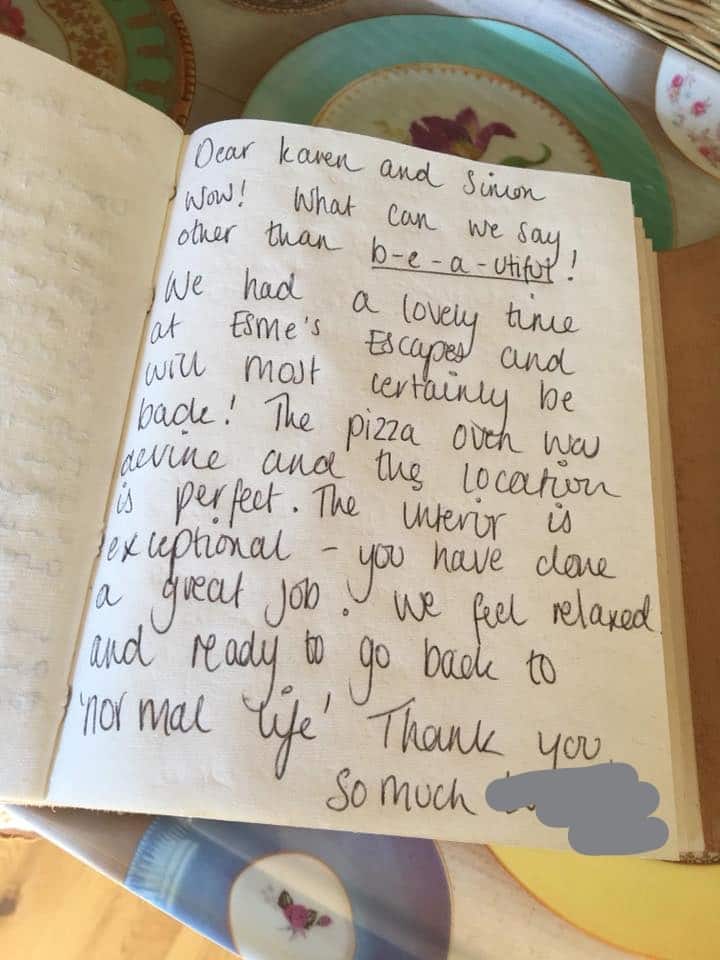 Dear Karen and Simon
Wow! What can we say
other than b-e-a-utiful!
We had a lovely time
at Esme's Escapes and
will most certainly be
back! The pizza oven was
devine and the location
is perfect. The interior is
exceptional - you have done
a great job! We feel relaxed
and ready to go back to
'normal life' Thank you
So much